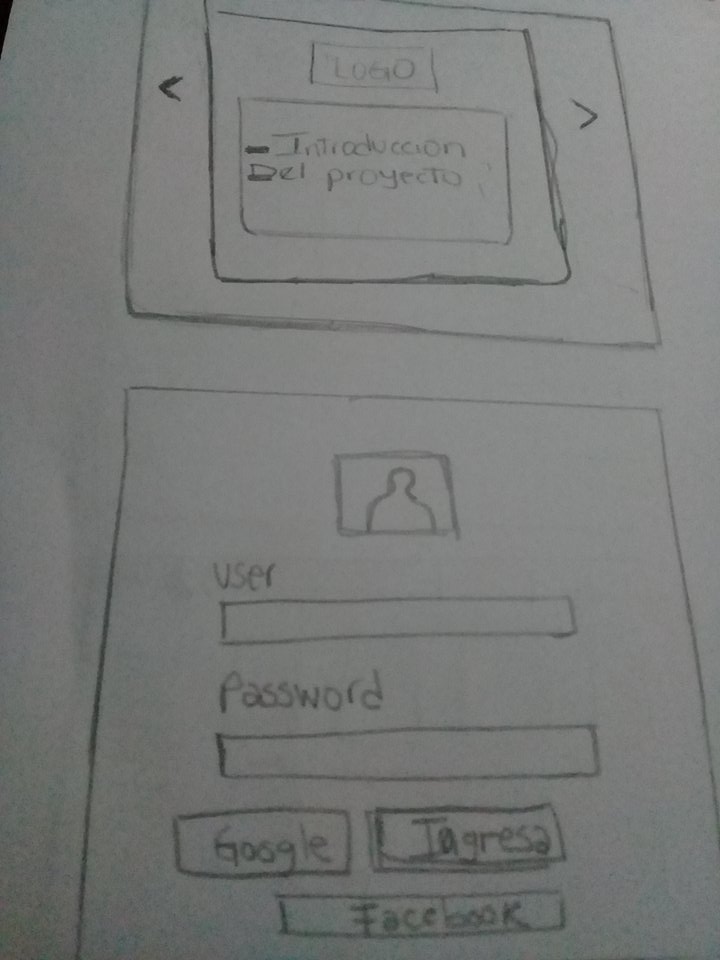 <
>
LOGO
- Introduccion
Del proyecto
User
Password
Google
Ingresa
Facebook